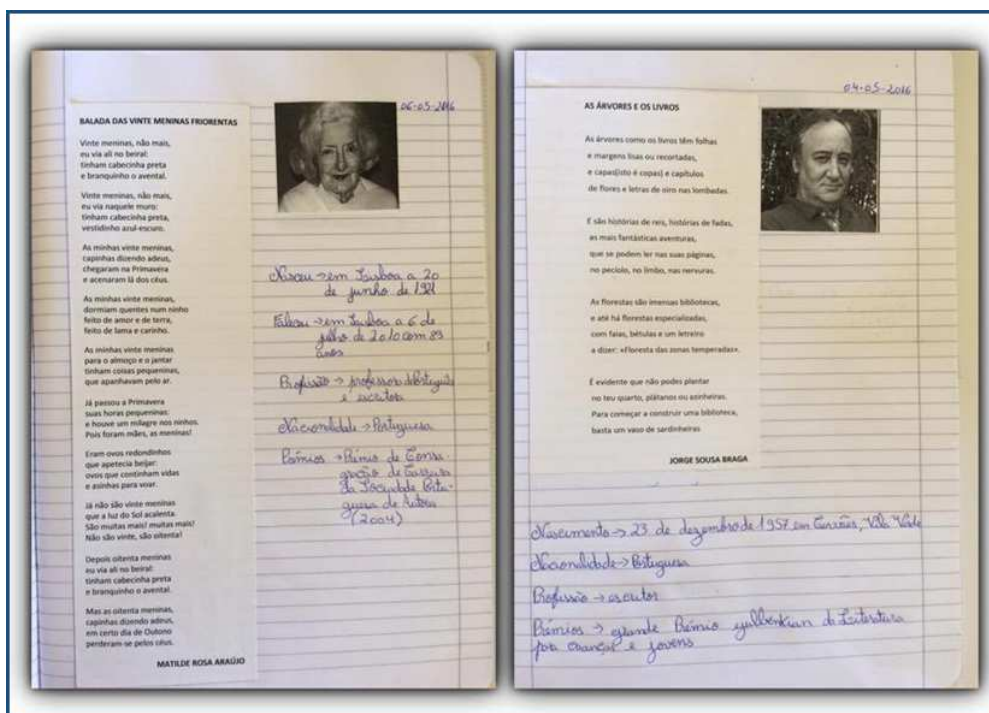 06-05-2016
BALADA DAS VINTE MENINAS FRIORENTAS
Vinte meninas, não mais,
eu via ali no beiral:
tinham cabecinha preta
e branquinho o avental.
Vinte meninas, não mais,
eu via naquele muro:
tinham cabecinha preta,
vestidinho azul-escuro.
As minhas vinte meninas,
capinhas dizendo adeus,
chegaram na Primavera
e acenaram lá dos céus.
As minhas vinte meninas,
dormiam quentes num ninho
feito de amor e de terra,
feito de lama e carinho.
As minhas vinte meninas
para o almoço e o jantar
tinham coisas pequeninas,
que apanhavam pelo ar.
Já passou a Primavera
suas horas pequeninas:
e houve um milagre nos ninhos.
Pois foram mães, as meninas!
Eram ovos redondinhos
que apetecia beijar:
ovos que continham vidas
e asinhas para voar.
Já não são vinte meninas
que a luz do Sol acalenta.
São muitas mais! muitas mais!
Não são vinte, são oitenta!
Depois oitenta meninas
eu via ali no beiral:
tinham cabecinha preta
e branquinho o avental.
Mas as oitenta meninas,
capinhas dizendo adeus,
em certo dia de Outono
perderam-se pelos céus.
MATILDE ROSA ARAÚJO
Nasceu → em Lisboa a 20
de junho de 1921
Faleceu → em Lisboa a 6 de
julho de 2010 com 89
anos
Profissão → professora de Português
e escritora
Nacionalidade → Portuguesa
Prémios → Prémio de Consa-
gração de Carreira
da Sociedade Portu-
guesa de Autores
(2004)
04-05-2016
AS ÁRVORES E OS LIVROS
As árvores como os livros têm folhas
e margens lisas ou recortadas,
e capas(isto é copas) e capítulos
de flores e letras de oiro nas lombadas.
E são histórias de reis, histórias de fadas,
as mais fantásticas aventuras,
que se podem ler nas suas páginas,
no pecíolo, no limbo, nas nervuras.
As florestas são imensas bibliotecas,
e até há florestas especializadas,
com faias, bétulas e um letreiro
a dizer: «Floresta das zonas temperadas».
É evidente que não podes plantar
no teu quarto, plátanos ou azinheiras.
Para começar a construir uma biblioteca,
basta um vaso de sardinheiras
JORGE SOUSA BRAGA
Nascimento → 23 de dezembro de 1957 em Cervães, Vila Verde
Nacionalidade → Portuguesa
Profissão → escritor
Prémios → grande Prémio gulbenkian de Literatura
para crianças e jovens